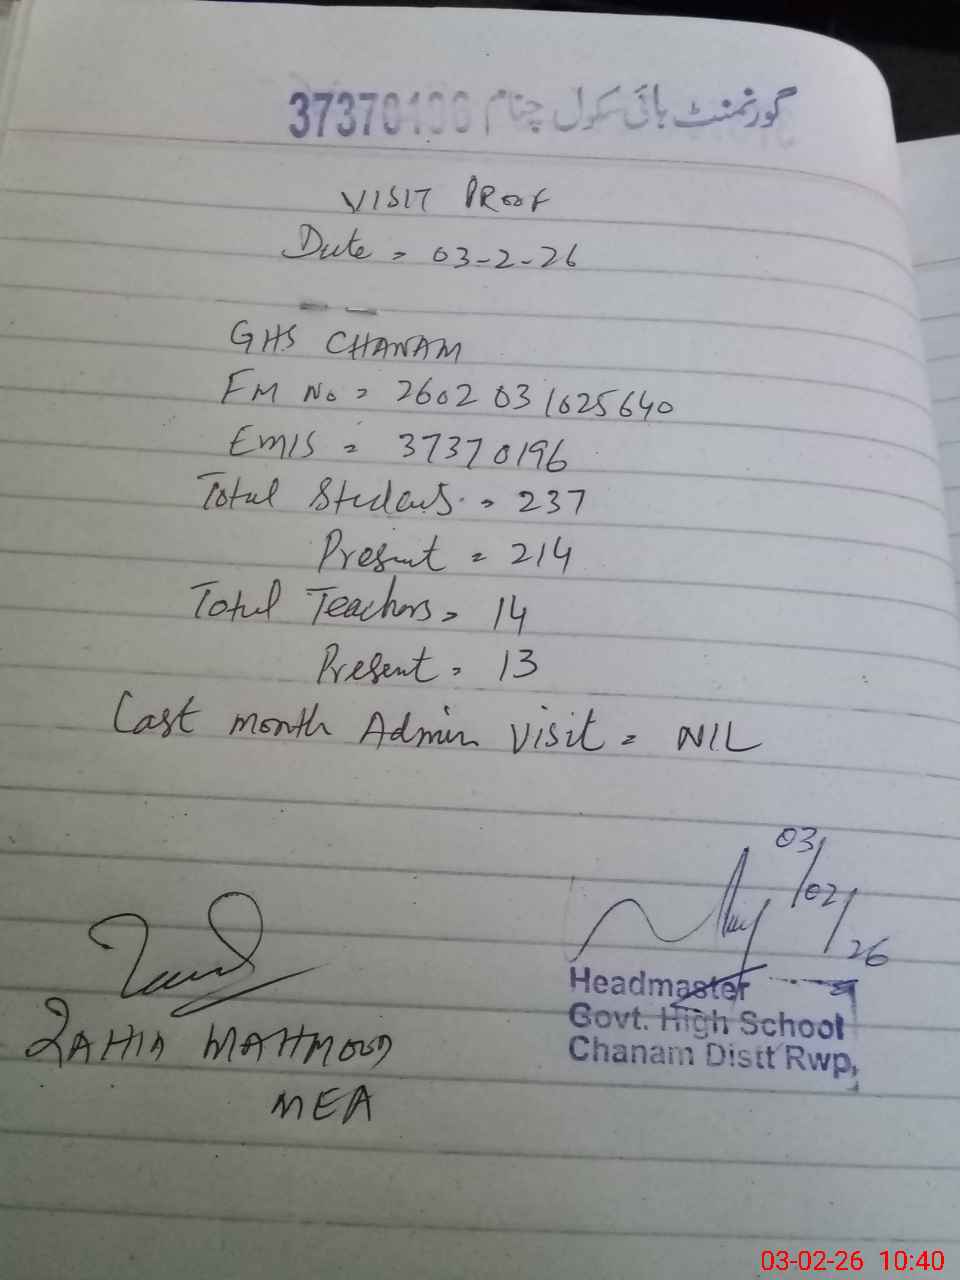 گورنمنٹ ہائی سکول چنام 37370196
VISIT PROOF
Date = 03-2-26
GHS CHANAM
FM No = 2602 031025640
EMIS = 37370196
Total Students = 237
Present = 214
Total Teachers = 14
Present = 13
Last month Admin Visit = NIL
03/02/26
Headmaster
Govt. High School
Chanam Distt Rwp,
MAHMOOD
MEA
03-02-26 10:40